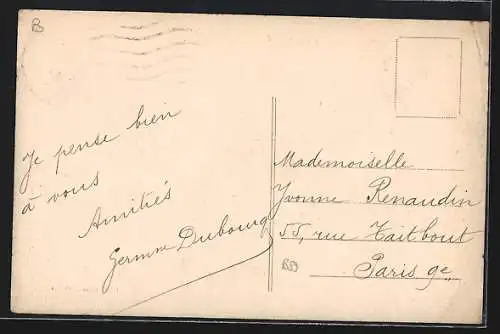 Je pense bien
à vous
Amitiés
Dubourg
Mademoiselle
Yvonne Renaudin
55, rue Taitbout
Paris 9e